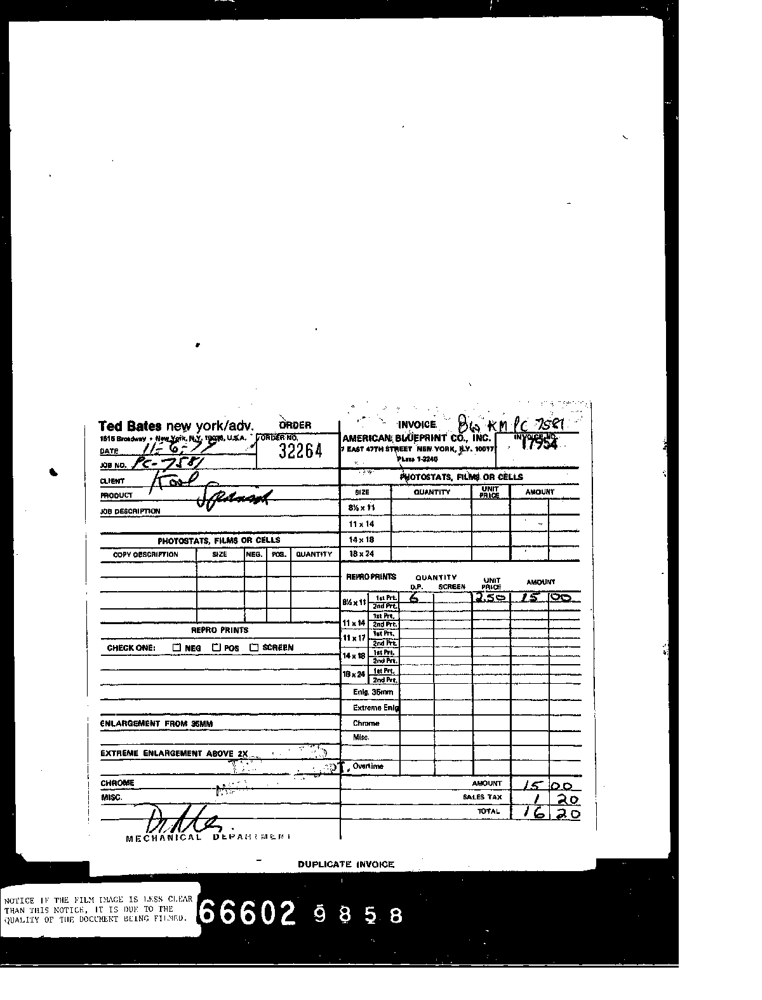 Ted Bates new york/adv. ORDER
1515 Broadway • New York, N.Y. 10036, U.S.A. ORDER NO.
DATE 11-6-79 32264
JOB NO. PC-7581
CLIENT Kool
PRODUCT
JOB DESCRIPTION
PHOTOSTATS, FILMS OR CELLS
COPY DESCRIPTION SIZE NEG. POS. QUANTITY
REPRO PRINTS
CHECK ONE: ☐ NEG ☐ POS ☐ SCREEN
ENLARGEMENT FROM 35MM
EXTREME ENLARGEMENT ABOVE 2X
CHROME
MISC.
MECHANICAL DEPARTMENT
INVOICE B&W KM PC 7581
AMERICAN BLUEPRINT CO., INC. INVOICE NO.
7 EAST 47TH STREET NEW YORK, N.Y. 10017 17954
PLaza 1-2240
PHOTOSTATS, FILMS OR CELLS
SIZE QUANTITY UNIT PRICE AMOUNT
8½ x 11
11 x 14
14 x 18
18 x 24
REPRO PRINTS QUANTITY UNIT PRICE AMOUNT
O.P. SCREEN
8½ x 11 1st Prt. 6 2.50 15 00
2nd Prt.
11 x 14 1st Prt.
2nd Prt.
11 x 17 1st Prt.
2nd Prt.
14 x 18 1st Prt.
2nd Prt.
18 x 24 1st Prt.
2nd Prt.
Enlg. 35mm
Extreme Enlg
Chrome
Misc.
Overtime
AMOUNT 15 00
SALES TAX 1 20
TOTAL 16 20
DUPLICATE INVOICE
NOTICE IF THE FILM IMAGE IS LESS CLEAR
THAN THIS NOTICE, IT IS DUE TO THE
QUALITY OF THE DOCUMENT BEING FILMED.
66602 9858